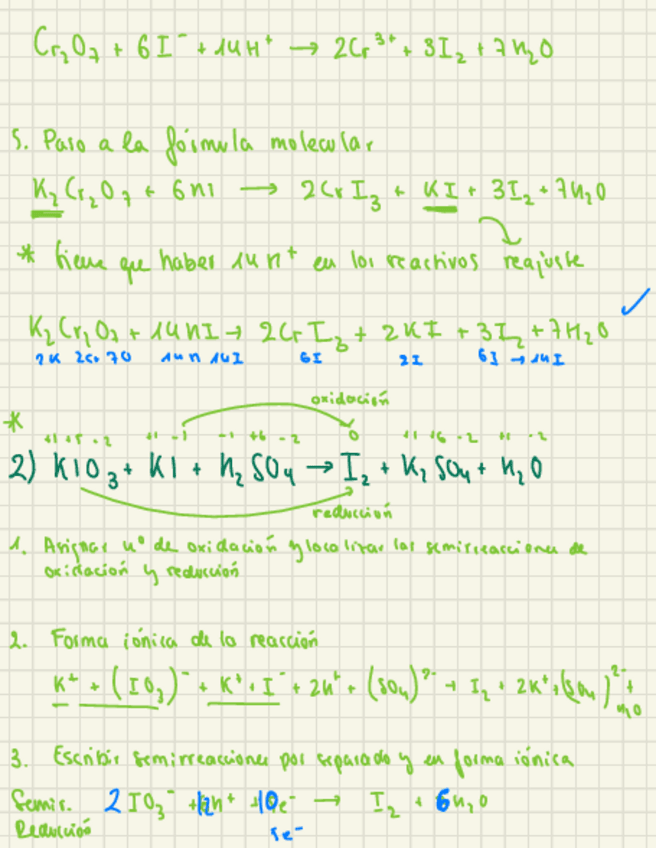 Cr₂O₇ + 6I⁻ + 14H⁺ → 2Cr³⁺ + 3I₂ + 7H₂O
5. Paso a la fórmula molecular
K₂Cr₂O₇ + 6HI → 2CrI₃ + KI + 3I₂ + 7H₂O
* tiene que haber 14H⁺ en los reactivos reajuste
K₂Cr₂O₇ + 14HI → 2CrI₃ + 2KI + 3I₂ + 7H₂O ✓
2K 2Cr 7O 14H 14I 6I 2I 6I → 14I
oxidación
*
+1 +5 -2 +1 -1 -1 +6 -2 0 +1 +6 -2 +1 -2
2) KIO₃ + KI + H₂SO₄ → I₂ + K₂SO₄ + H₂O
reducción
1. Asignar nº de oxidación y localizar las semirreacciones de
oxidación y reducción
2. Forma iónica de la reacción
K⁺ + (IO₃)⁻ + K⁺ + I⁻ + 2H⁺ + (SO₄)²⁻ → I₂ + 2K⁺ + (SO₄)²⁻ +
H₂O
3. Escribir semirreacciones por separado y en forma iónica
Semir. 2IO₃⁻ + 12H⁺ + 10e⁻ → I₂ + 6H₂O
Reducción 5e⁻